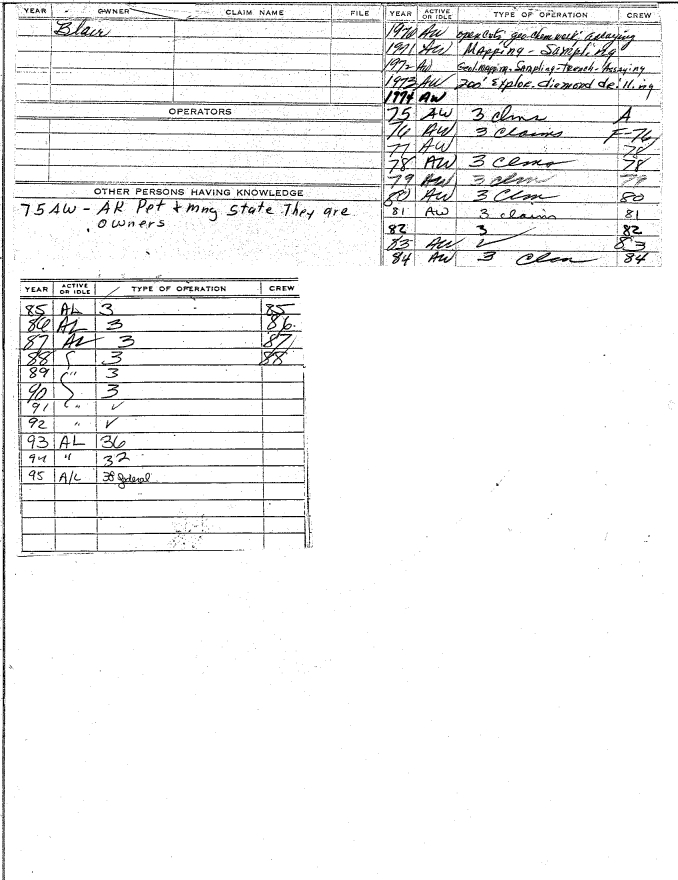 YEAR OWNER CLAIM NAME FILE
Blair
OPERATORS
OTHER PERSONS HAVING KNOWLEDGE
75 AW - AK Pet & mng state They are
owners
YEAR ACTIVE OR IDLE TYPE OF OPERATION CREW
1970 AW open cuts, geo-chem work, assaying
1971 AW Mapping - Sampling
1972 AW Geol. Mapping - Sampling - Trench - Assaying
1973 AW 200' Explor. diamond drilling
1974 AW
75 AW 3 clms A
76 AW 3 claims F-76
77 AW 78
78 AW 3 clms 78
79 AW 3 clm 79
80 AW 3 Clm 80
81 AW 3 claims 81
82 3 82
83 AW ✓ 83
84 AW 3 84
YEAR ACTIVE OR IDLE TYPE OF OPERATION CREW
85 AL 3 85
86 AL 3 86
87 AL 3 87
88 3 88
89 " 3
90 3
91 " ✓
92 " ✓
93 AL 36
94 " 32
95 A/L 38 federal